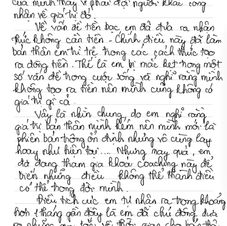 của mình thay vì phải đợi người khác công
nhận về giá trị đó.
Về vấn đề tiền bạc em đã đưa ra nhận
thức không cần tiền - Chính điều này đã làm
bản thân em trì trệ trong các cách thức tạo
ra dòng tiền. Thế là em bị mắc kẹt trong một
số vấn đề trong cuộc sống và nghĩ rằng mình
không tạo ra tiền nên mình cũng không có
giá trị gì cả.
Vậy là nhìn chung, do em nghĩ rằng
giá trị bản thân mình kém nên mình mới là
phiên bản trông ổn định nhưng vô cùng lay
hoay như hiện tại.... Nhưng may quá, em
đã đang tham gia khoá coaching này để
biến những điều không thể thành điều
có thể trong đời mình.
Điều tích cực em tự nhận ra trong khoảng
hơn 1 tháng gần đây là em đã chủ động đưa